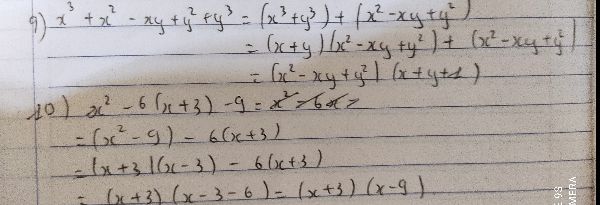 9) x³ + x² - xy + y² + y³ = (x³ + y³) + (x² - xy + y²)
= (x + y)(x² - xy + y²) + (x² - xy + y²)
= (x² - xy + y²)(x + y + 1)
10) x² - 6(x + 3) - 9 = x² - 6x -
= (x² - 9) - 6(x + 3)
= (x + 3)(x - 3) - 6(x + 3)
= (x + 3)(x - 3 - 6) = (x + 3)(x - 9)